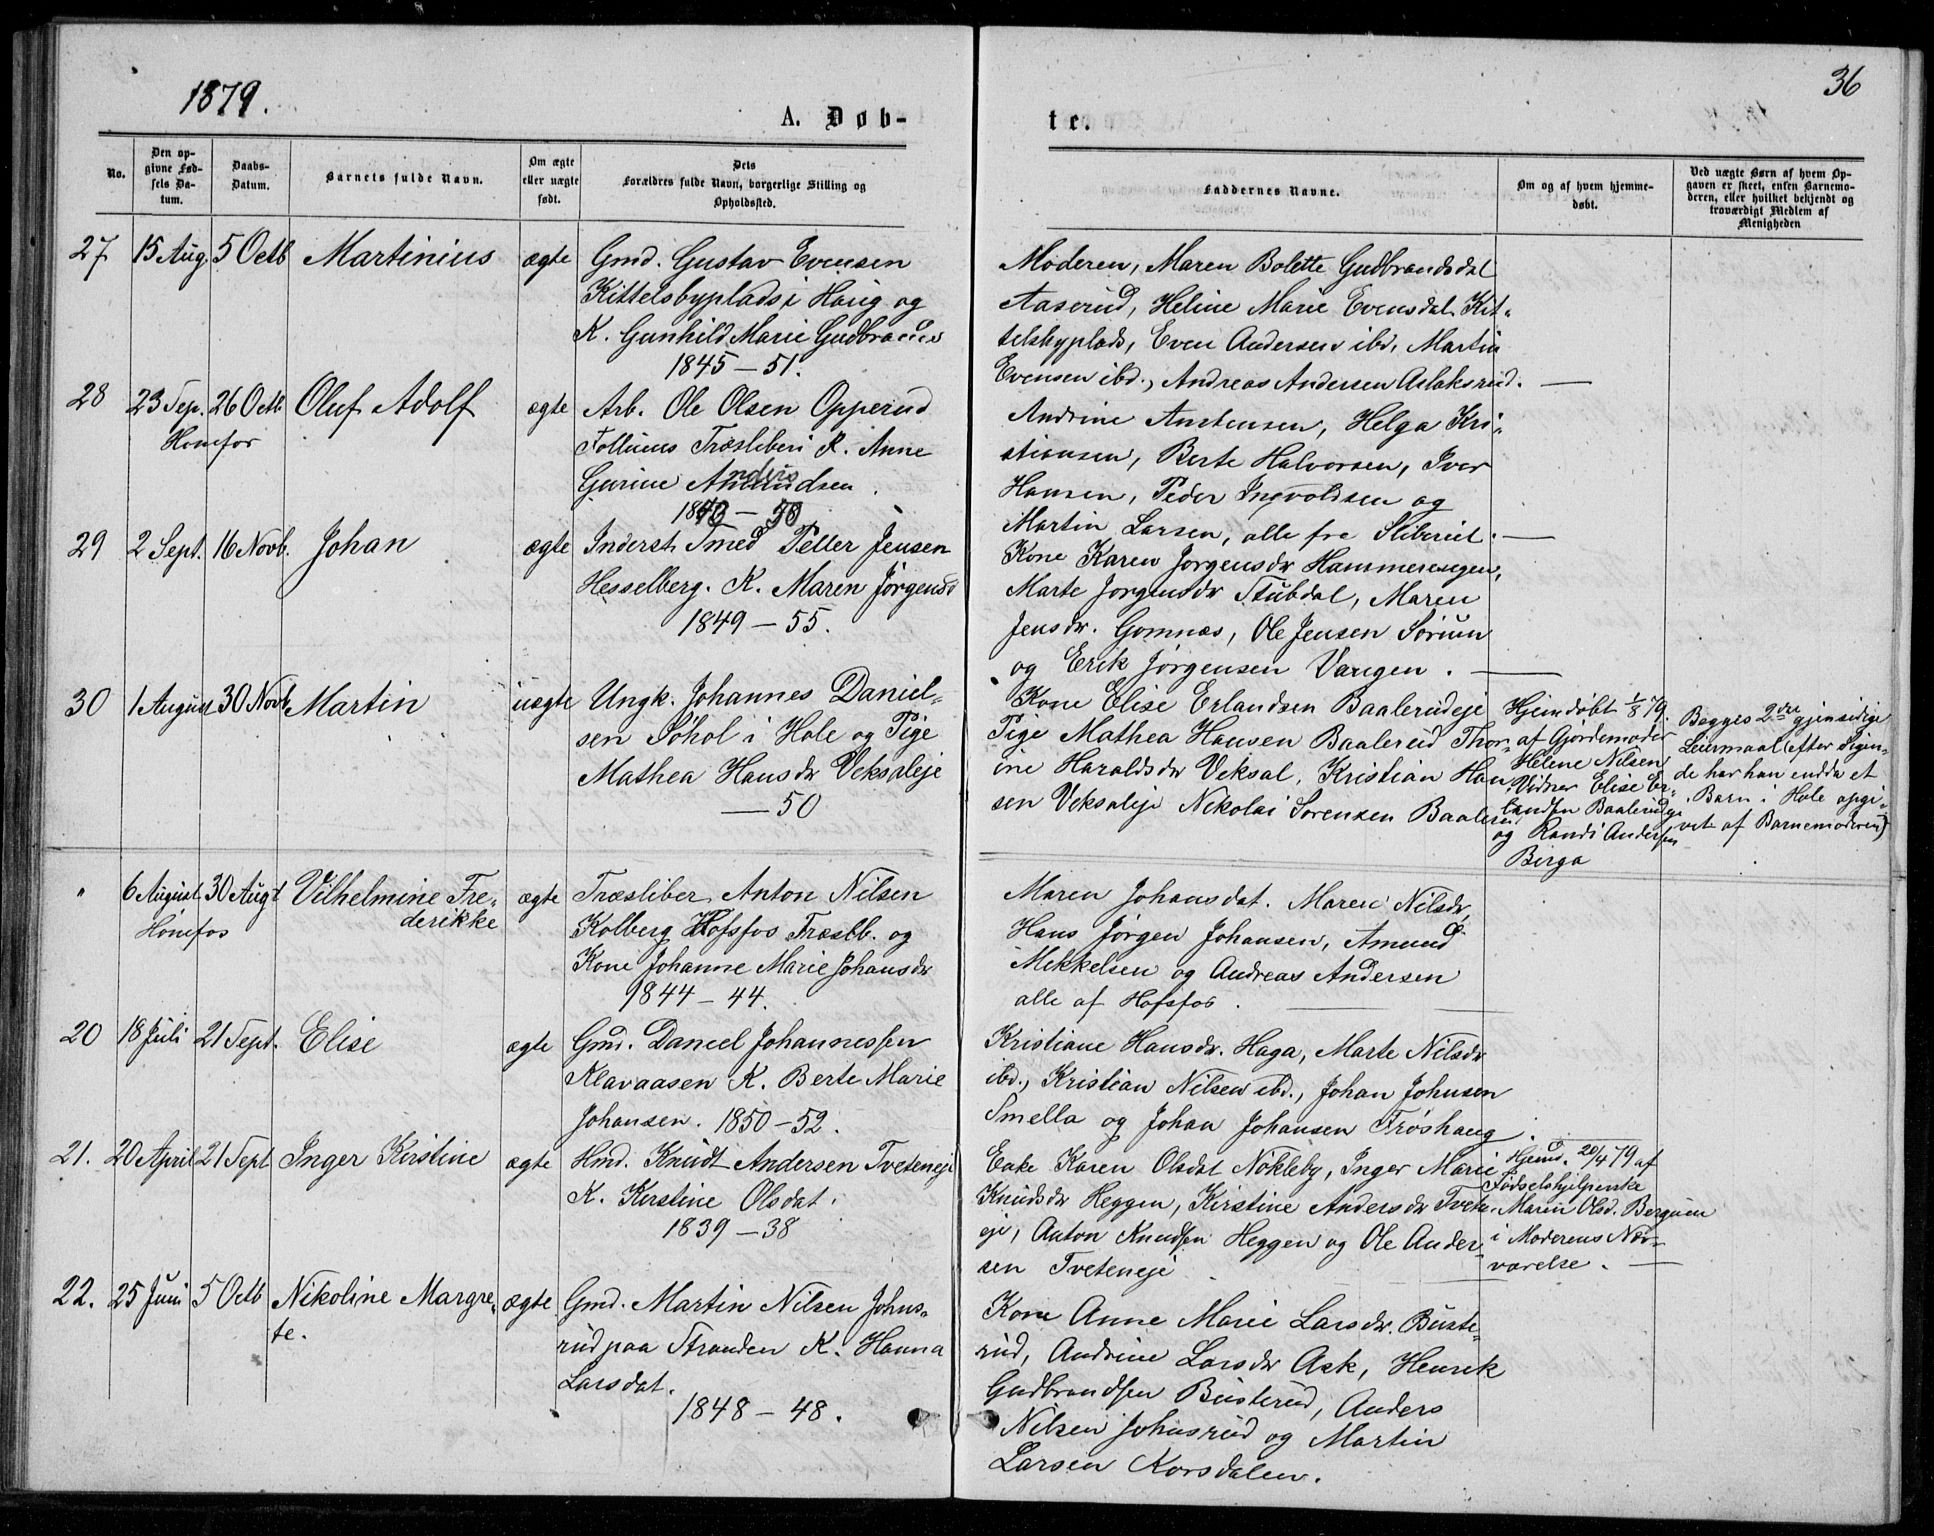 1879.
A. Døb-
No.
Den op-
givne Fød-
sels Da-
tum.
Daabs-
Datum.
Barnets fulde Navn.
Om ægte
eller uægte
født.
Dets
Forældres fulde Navn, borgerlige Stilling og
Opholdssted.
27 15 Aug. 5 Octb Martinius ægte Gmd. Gustav Evensen
Kittelsbyplads i Haug og
K. Gunhild Marie Gudbrands
1845 – 51.
28 23 Sep. 26 Octb. Oluf Adolf ægte Arb. Ole Olsen Opperud
Hønefos
Follums Træsliberi K. Anne
Gurine
29 2 Sept. 16 Novb. Johan ægte Inderst Smed Peller Jensen
Hesselberg. K. Maren Jørgensd
1849 – 55.
30 1 August 30 Novb. Martin uægte Ungk. Johannes Daniel-
sen Søhol i Hole og Pige
Mathea Hansdr Veksaleje
— 50
" 6 August 30 Augt Vilhelmine Fre-
derikke
Hønefos
ægte Træsliber Anton Nilsen
Kolberg Hofsfos Træslb. og
Kone Johanne Marie Johansdr
1844 – 44.
20 18 Juli 21 Sept. Elise ægte Gmd. Daniel Johannessen
Klavaasen K. Berte Marie
Johansen. 1850 – 52.
21. 20 April 21 Sept Inger Kirstine ægte Hmd. Knudt Andersen Tveteneje
K. Kirstine Olsdat.
1839 – 38
22. 25 Juni 5 Octb Nikoline Margre-
te.
ægte Gmd. Martin Nilsen Johns-
rud paa Stranden K. Hanna
Larsdat.
1848 – 48.
36
te.
Faddernes Navne.
Om og af hvem hjemme-
døbt.
Ved uægte Børn af hvem Op-
gaven er skeet, enten Barnemo-
deren, eller hvilket bekjendt og
troværdigt Medlem af
Menigheden
Moderen, Maren Bolette Gudbrandsdat
Aaserud, Heline Marie Evensdat Kit-
telsbyplads, Even Andersen ibd, Martin
Evensen ibd., Andreas Andersen Aslaksrud. —
Andrine Anstensen, Helga Kri-
stiansen, Berte Halvorsen, Iver
Hansen, Peder Ingvoldsen og
Martin Larsen, alle fra Sliberiet. —
Kone Karen Jørgensdr Hammersengen,
Marte Jorgensdr Stubdal, Maren
Jensdr. Gomnæs, Ole Jensen Sørum
og Erik Jørgensen Vangen. —
Kone Elise Erlandsen Baalerudeje
Pige Mathea Hansen Baalerud Thor-
ine Haraldsdr Veksal, Kristian Han
sen Veksaleje Nikolai Sorensen Baalerud
Hjemdøbt 1/8 79.
af Gjordemoder
Helene Nilsen
Vidner Elise Er-
landsen Baalerudeje
og Randi Andersen
Birga
Begges 2dre gjensidige
Leiermaal (efter Sigen-
de har han endda et
Barn i Hole opgi-
vet af Barnemoderen)
Maren Johansdat. Maren Nilsdr,
Hans Jörgen Johansen, Amund
Mekkelsen og Andreas Andersen
alle af Hofsfos. —
Kristiane Hansdr. Haga, Marte Nilsdr
ibd., Kristian Nilsen ibd., Johan Johnsen
Smella og Johan Johansen Frøshaug.
Enke Karen Olsdat Nøkleby, Inger Marie
Knudsdr Heggen, Kirstine Andersdr Tvete-
eje, Anton Knudsen Heggen og Ole Ander-
sen Tveteneje
Hjemd. 20/4 79 af
Fødselshjelperske
Maren Olsd. Berguen
i Moderens Nær-
værelse. —
Kone Anne Marie Larsdr. Buste-
rud, Andrine Larsdr Ask, Henrik
Gudbrandsen Busterud, Anders
Nilsen Johnsrud og Martin
Larsen Korsdalen.